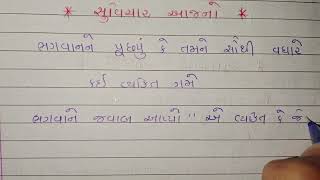 * સુવિચાર આજનો *
ભગવાનને પૂછ્યું કે તમને સૌથી વધારે
કઈ વ્યક્તિ ગમે
ભગવાને જવાબ આપ્યો " એ વ્યક્તિ કે જે